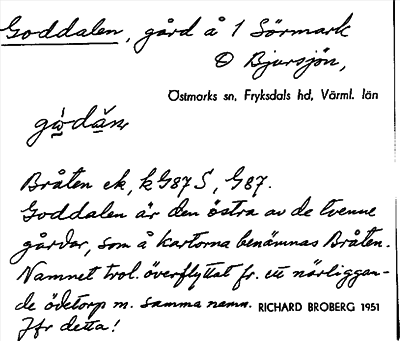 Goddalen, gård å 1 Sörmark
O Bjursjön,
Östmarks sn, Fryksdals hd, Värml. län
Bråten ek, kG87S, G87.
Goddalen är den östra av de tvenne
gårdar, som å kartorna benämnas Bråten.
Namnet trol. överflyttat fr. ett närliggan-
de ödetorp m. samma namn. RICHARD BROBERG 1951
Jfr detta!